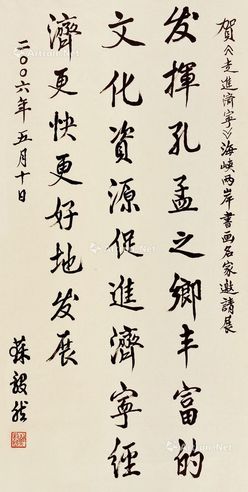 贺《走進濟寧》海峽两岸書画名家邀請展
发揮孔孟之鄉丰富的
文化資源促進濟寧經
濟更快更好地发展
二〇〇六年五月十日
蘇毅然